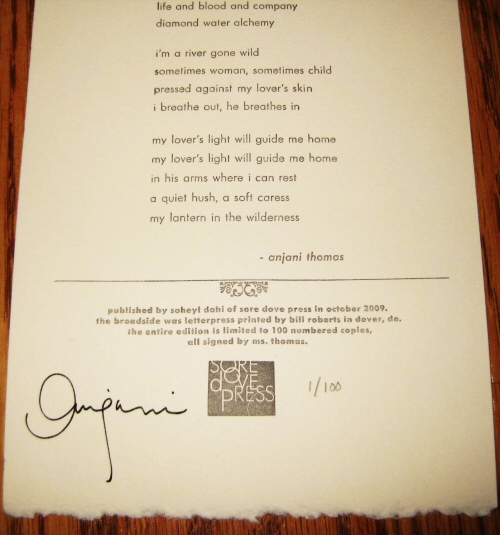 life and blood and company
diamond water alchemy
i'm a river gone wild
sometimes woman, sometimes child
pressed against my lover's skin
i breathe out, he breathes in
my lover's light will guide me home
my lover's light will guide me home
in his arms where i can rest
a quiet hush, a soft caress
my lantern in the wilderness
- anjani thomas
published by soheyl dahi of sore dove press in october 2009.
the broadside was letterpress printed by bill roberts in dover, de.
the entire edition is limited to 100 numbered copies,
all signed by ms. thomas.
SORE
dOVE
PRESS
1/100
Anjani